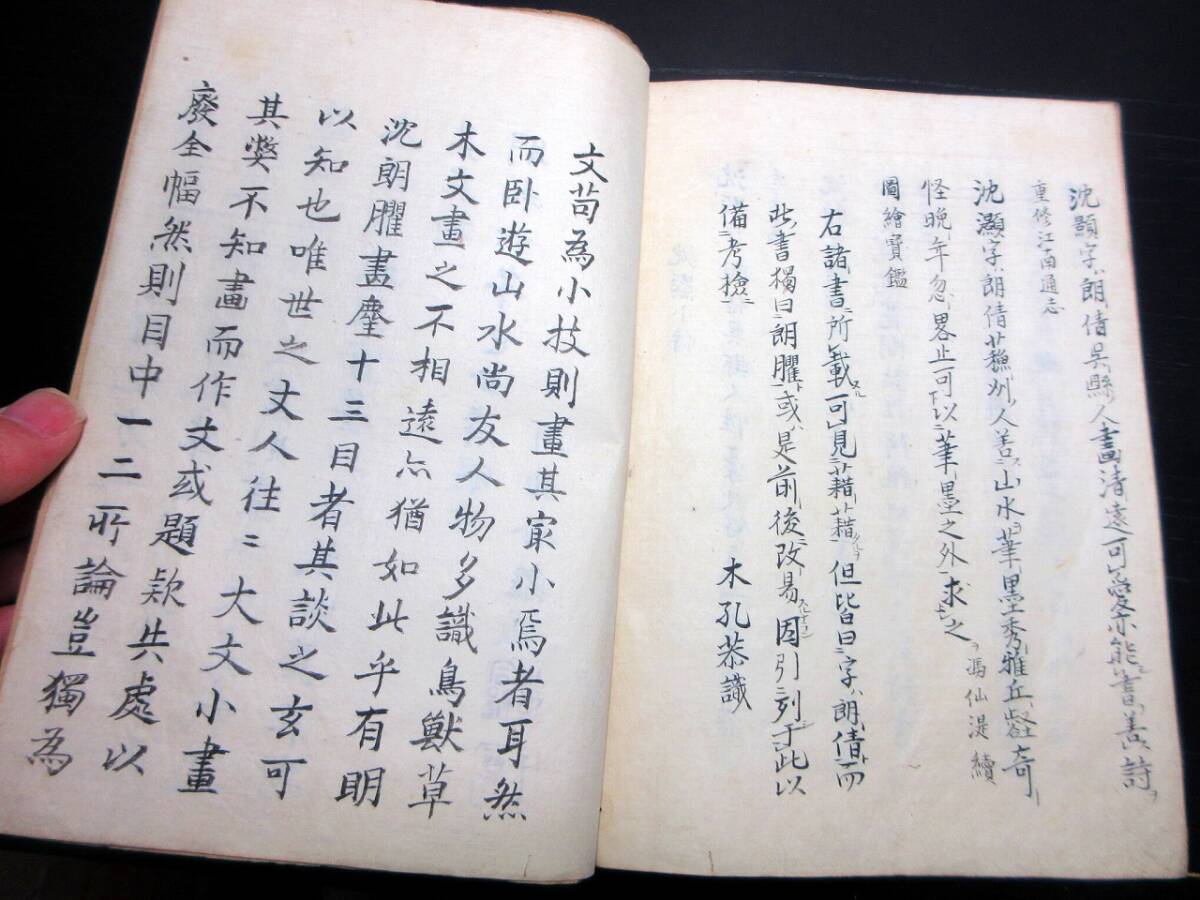 沈顥字朗倩呉縣人畫清遠可愛亦能書善詩
重修江南通志
沈灝字朗倩蘓州人善山水筆墨秀雅丘壑奇
怪晩年忽畧止可以筆墨之外求之 馮仙湜續
圖繪寳鑑
右諸書所載可見藉藉但皆曰字朗倩而
此書獨曰朗臞或是前後改易因引列于此以
備考檢
木孔恭識
文苟為小技則畫其㝡小焉者耳然
而卧遊山水尚友人物多識鳥獸草
木文畫之不相遠亦猶如此乎有明
沈朗臞畫麈十三目者其談之玄可
以知也唯世之文人往〻大文小畫
其獘不知畫而作文或題欵共處以
廢全幅然則目中一二所論豈獨為